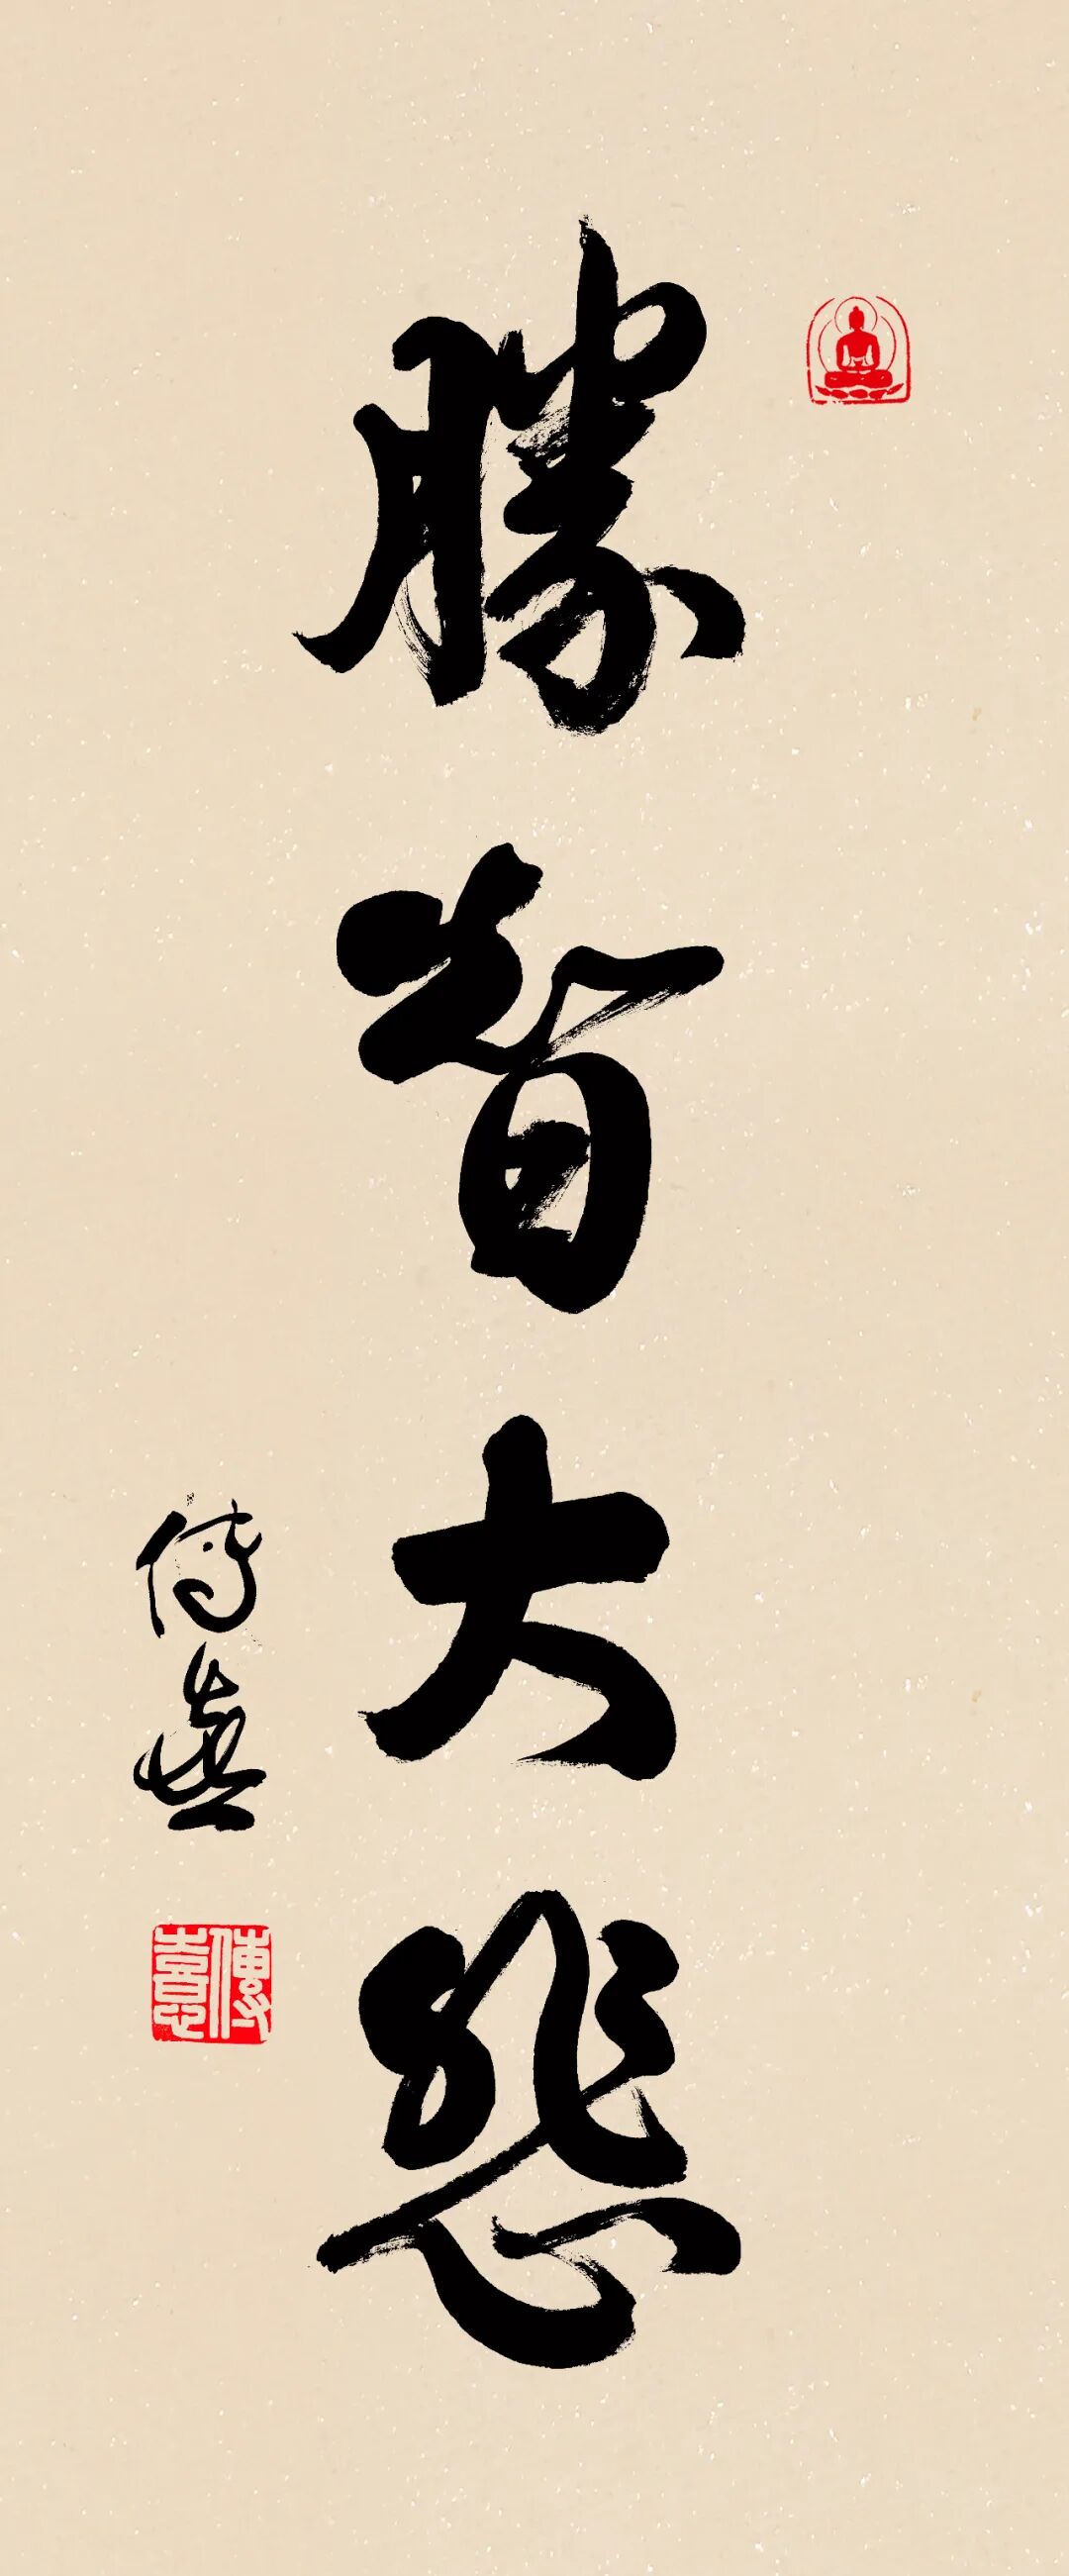 勝智大悲
傳喜
傳喜